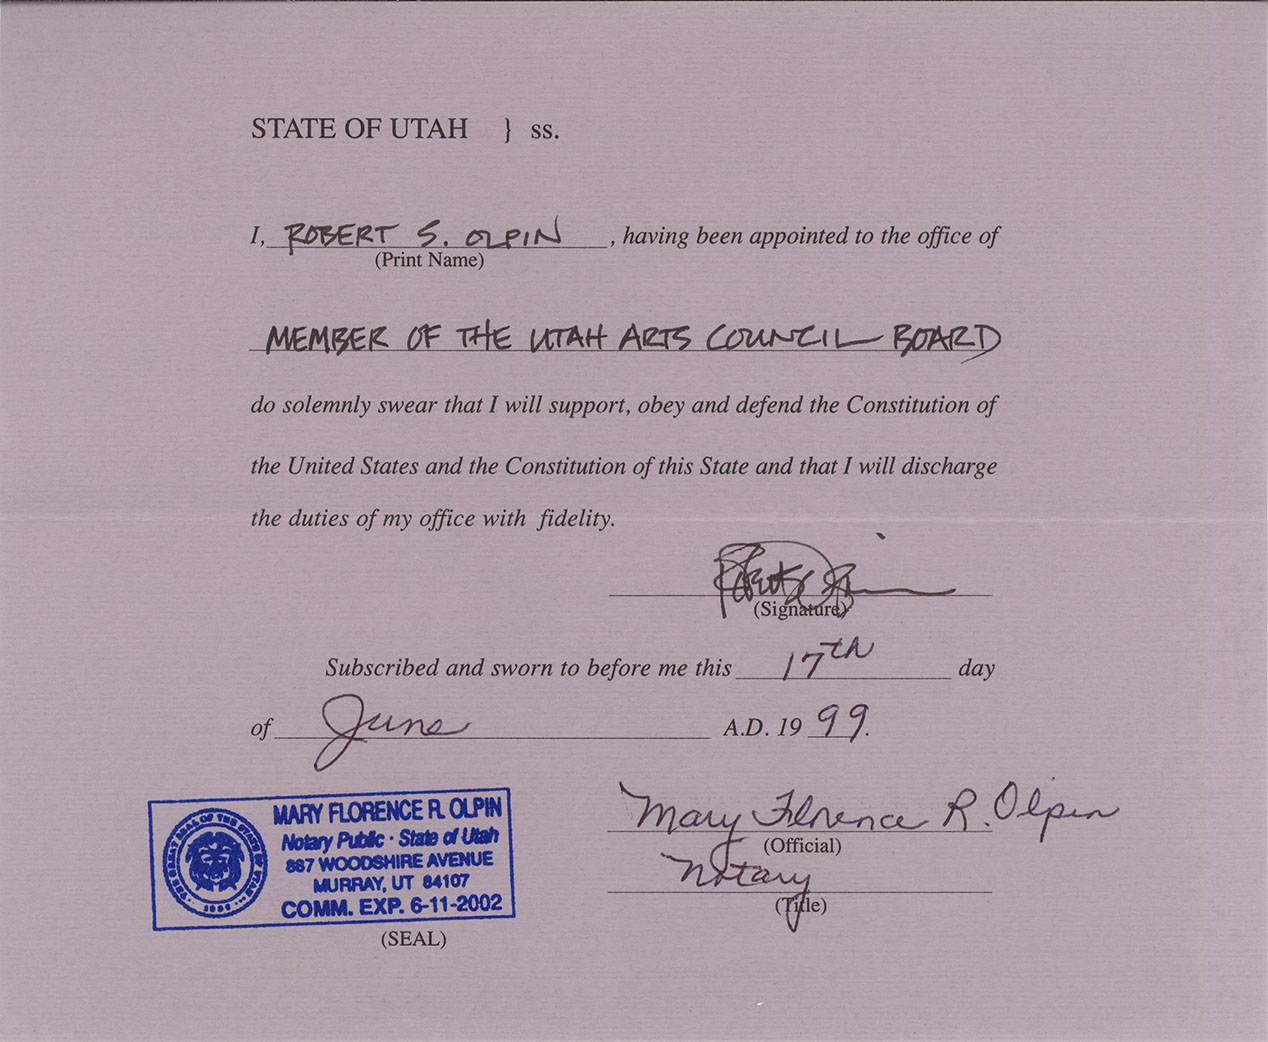 STATE OF UTAH } ss.
I, ROBERT S. OLPIN, having been appointed to the office of
(Print Name)
MEMBER OF THE UTAH ARTS COUNCIL BOARD
do solemnly swear that I will support, obey and defend the Constitution of
the United States and the Constitution of this State and that I will discharge
the duties of my office with fidelity.
(Signature)
Subscribed and sworn to before me this 17th day
of June A.D. 19 99.
Mary Florence R. Olpin
(Official)
Notary
(Title)
MARY FLORENCE R. OLPIN
Notary Public · State of Utah
887 WOODSHIRE AVENUE
MURRAY, UT 84107
COMM. EXP. 6-11-2002
THE GREAT SEAL OF THE STATE OF UTAH
1896
(SEAL)